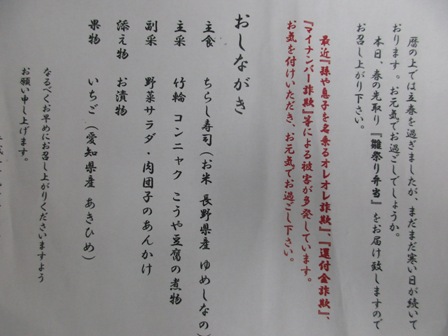 暦の上では立春を過ぎましたが、まだまだ寒い日が続いて
おります。お元気でお過ごしでしょうか。
本日、春の先取り『雛祭り弁当』をお届け致しますので
お召し上がり下さい。
最近『孫や息子を名乗るオレオレ詐欺』、『還付金詐欺』、
『マイナンバー詐欺』等による被害が多発しています。
お気を付けいただき、お元気でお過ごし下さい。
おしながき
主食 ちらし寿司（お米 長野県産 ゆめしなの）
主采 竹輪 コンニャク こうや豆腐の煮物
副采 野菜サラダ・肉団子のあんかけ
添え物 お漬物
果物 いちご（愛知県産 あきひめ）
なるべくお早めにお召し上がりくださいますよう
お願い申し上げます。